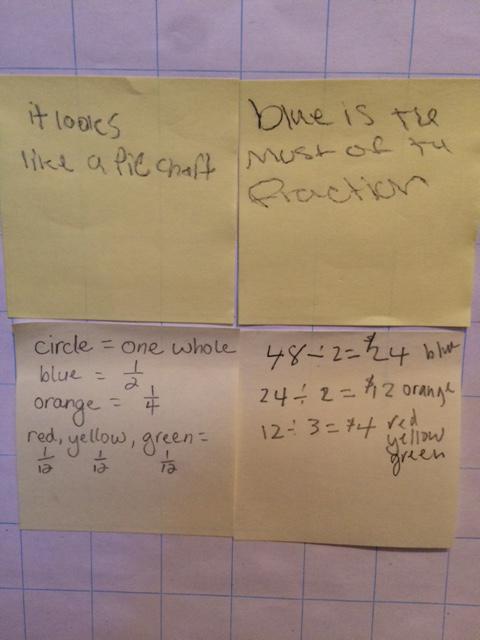 it looks
like a Pie chart
blue is the
Most of the
fraction
circle = one whole
blue = 1/2
orange = 1/4
red, yellow, green =
1/12 1/12 1/12
48 ÷ 2 = $24 blue
24 ÷ 2 = $12 orange
12 ÷ 3 = $4 red
yellow
green